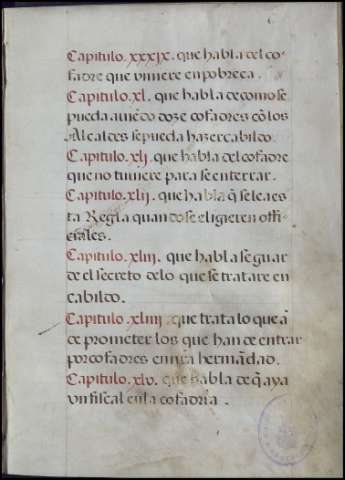 Capitulo. xxxix. que habla del co-
fadre que viniere en pobreça.
Capitulo. xl. que habla de como se
pueda auiẽdo doze cofadres cõ los
Alcaldes se pueda hazer cabildo.
Capitulo. xlj. que habla del cofadre
que no tuuiere para se enterrar.
Capitulo. xlij. que habla q̃ se lea es
ta Regla quando se eligieren offi-
ciales.
Capitulo. xliij. que habla se guar
de el secreto de lo que se tratare en
cabildo.
Capitulo. xliiij. que trata lo que ã
de prometer los que han de entrar
por cofadres en nr̃a hermãdad.
Capitulo. xlv. que habla de q̃ aya
vn fiscal en la cofadria.